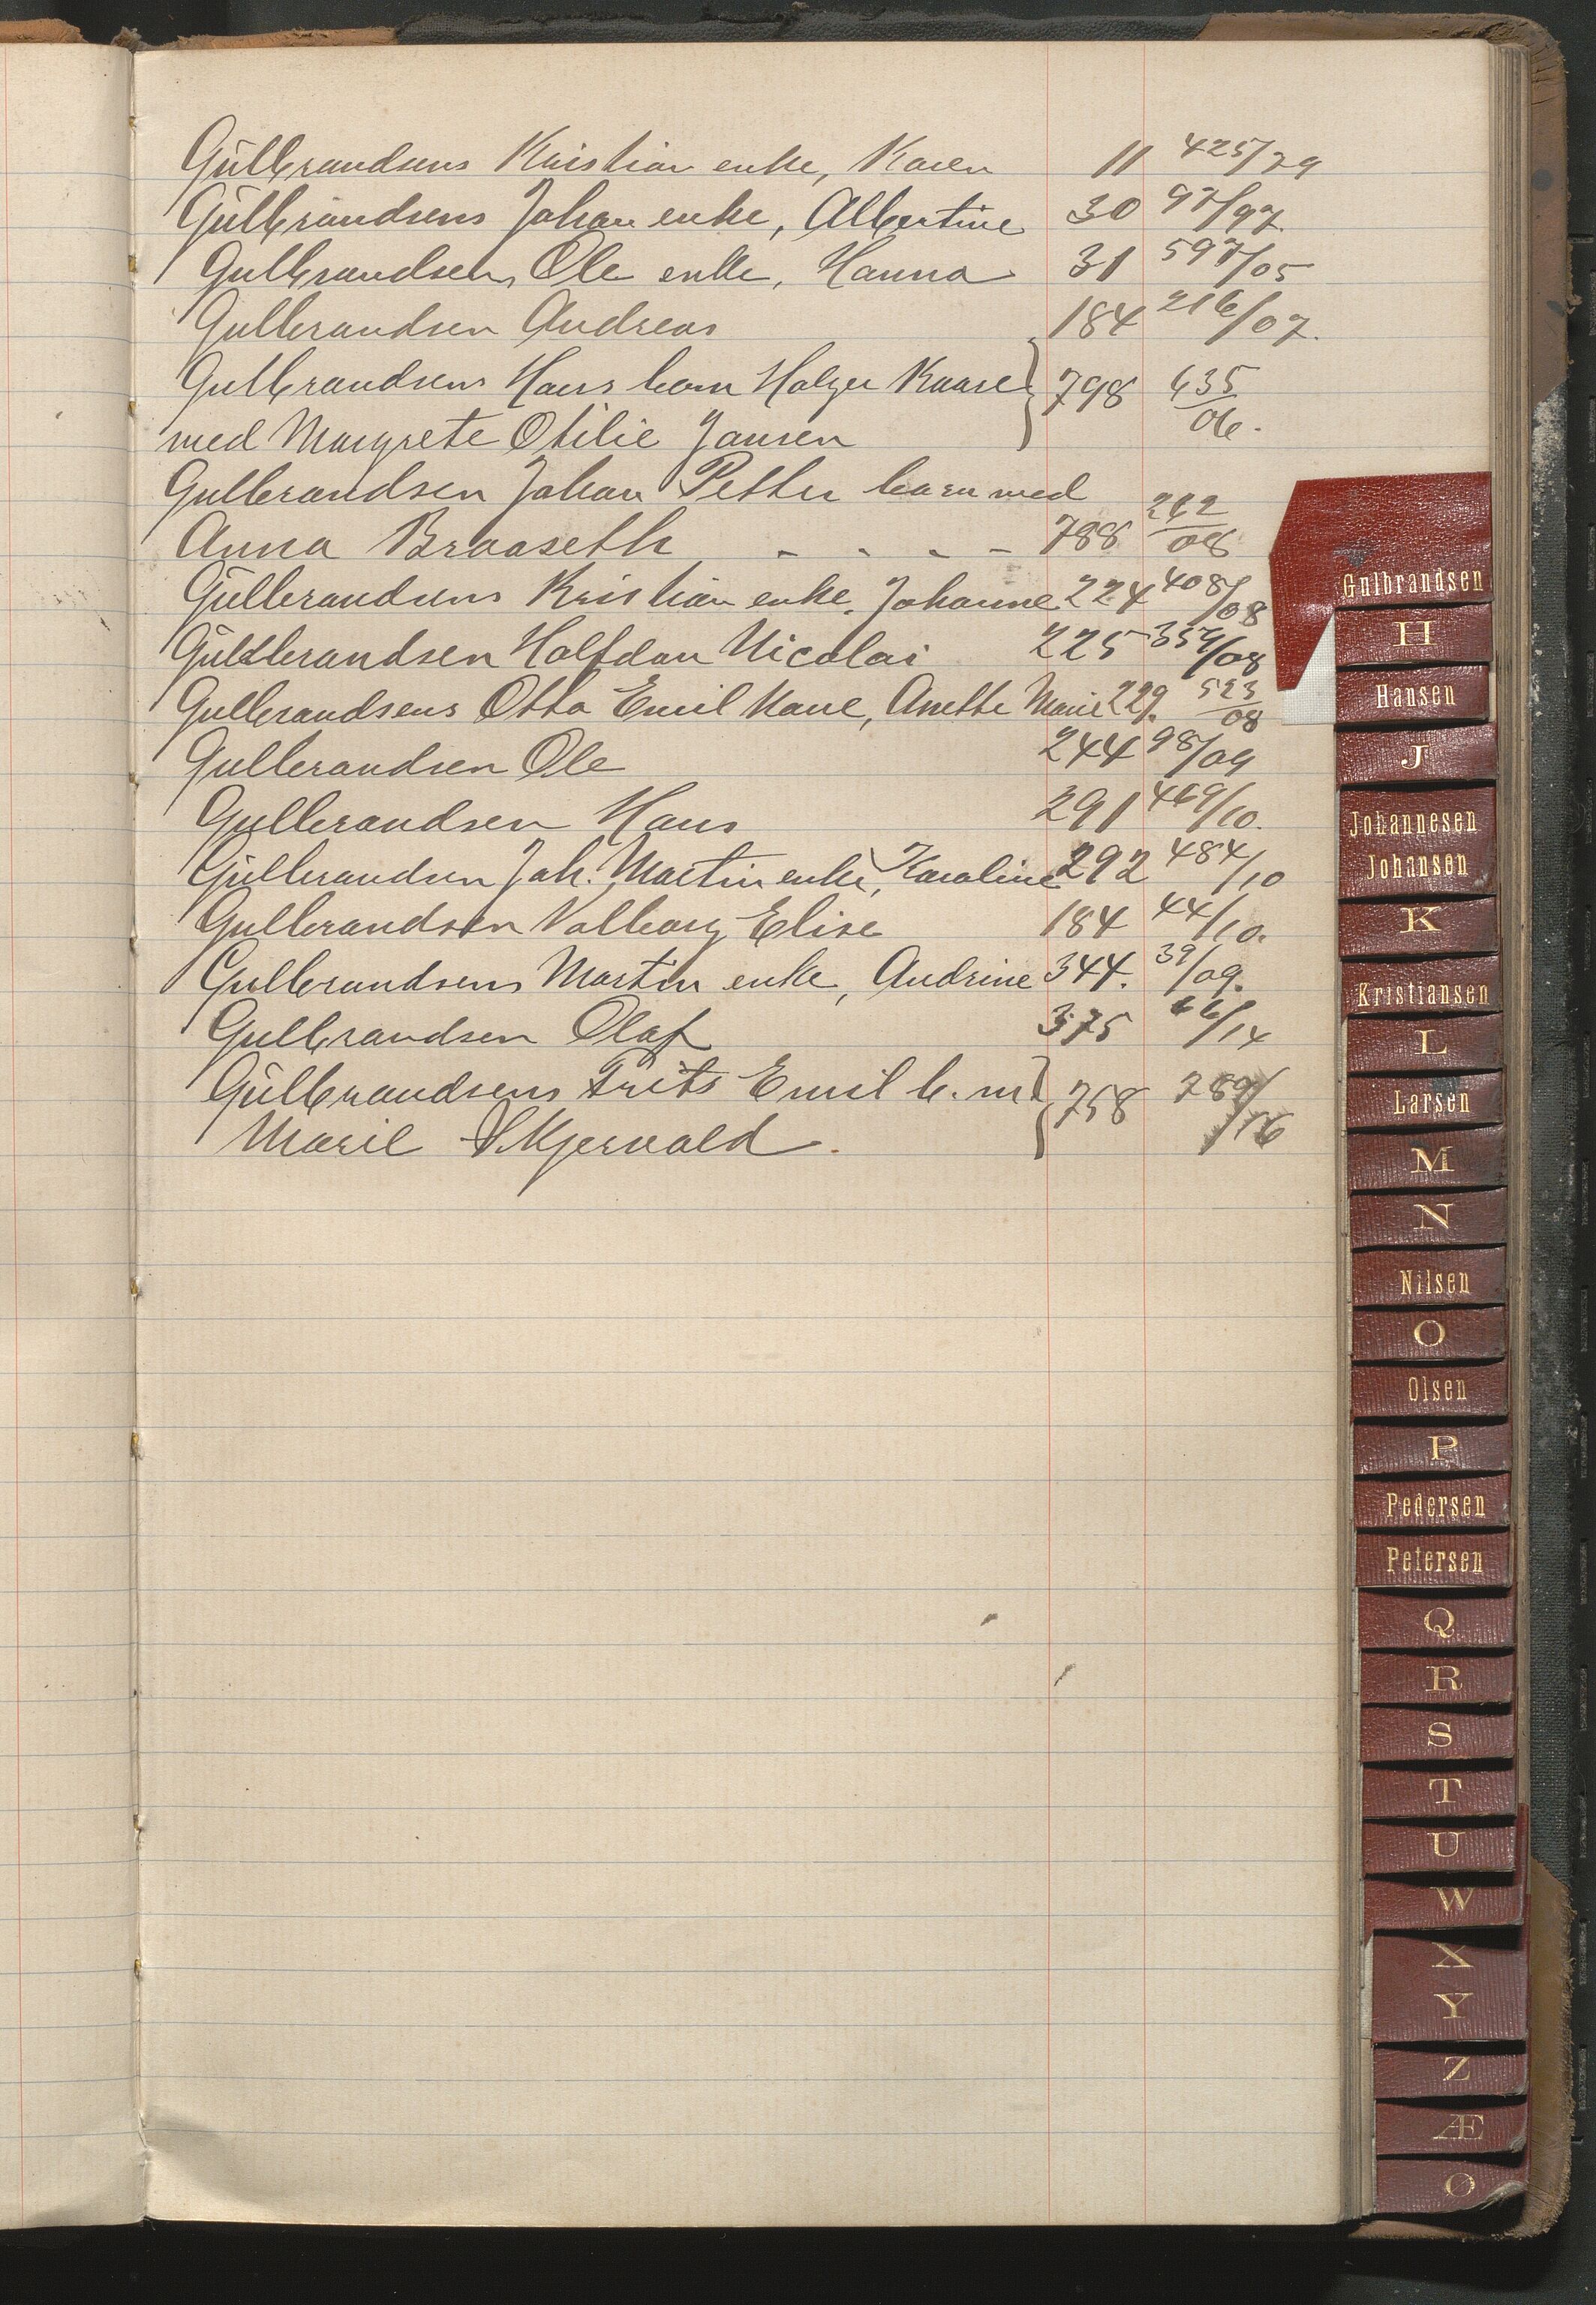 Gulbrandsens Kristian enke, Karen 11 425/79
Gulbrandsens Johan enke, Albertine 30 97/97
Gulbrandsens Ole enke, Hanna 31 597/05
Gulbrandsen Andreas 184 216/07.
Gulbrandsens Hans barn Holger Kaare 798 635/06.
med Margrete Otilie Jansen
Gulbrandsen Johan Petter barn med
Anna Braaseth - - - - 788 242/08
Gulbrandsens Kristian enke, Johanne 224 408/08
Gulbrandsen Halfdan Nicolai 225 359/08
Gulbrandsens Otto Emil Kone, Anette Marie 229. 523/08
Gulbrandsen Ole 244 98/09
Gulbrandsen Hans 291 469/10.
Gulbrandsen Joh. Martin enke, Karoline 292 484/10
Gulbrandsen Valborg Elise 184 44/10.
Gulbrandsens Martin enke, Andrine 344. 39/09.
Gulbrandsen Olaf 375 66/14
Gulbrandsens Frits Emil b. m. 758 289/16
Maril Skjervold.
Gulbrandsen
H
Hansen
J
Johannesen
Johansen
K
Kristiansen
L
Larsen
M
N
Nilsen
O
Olsen
P
Pedersen
Petersen
Q
R
S
T
U
W
X
Y
Z
Æ
Ø